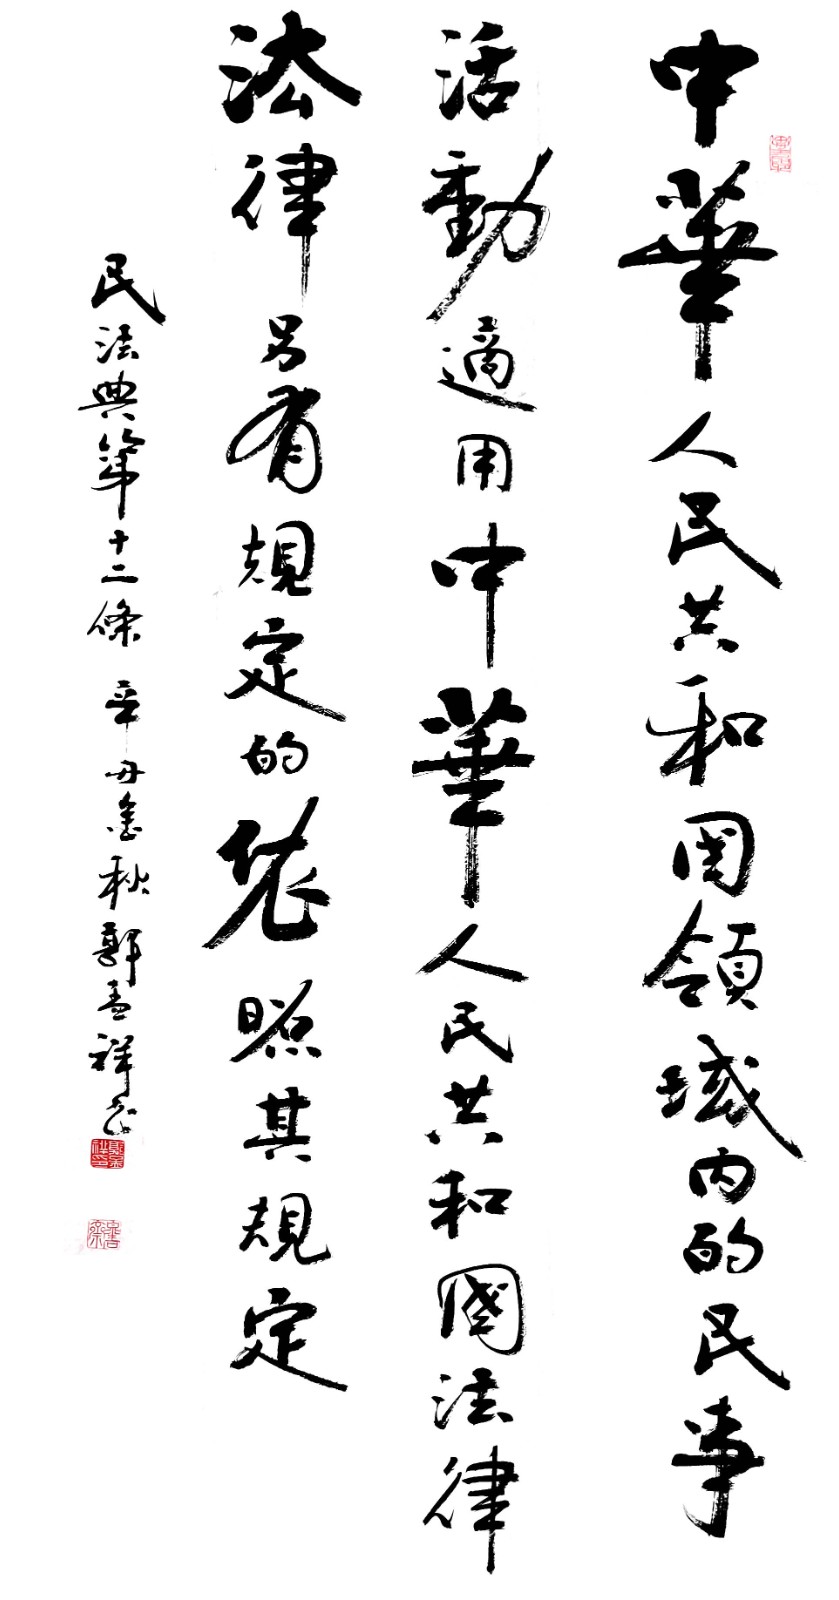 中華人民共和国領域内的民事
活動適用中華人民共和國法律
法律另有規定的依照其規定
民法典第十二條 辛丑金秋郭孟祥書